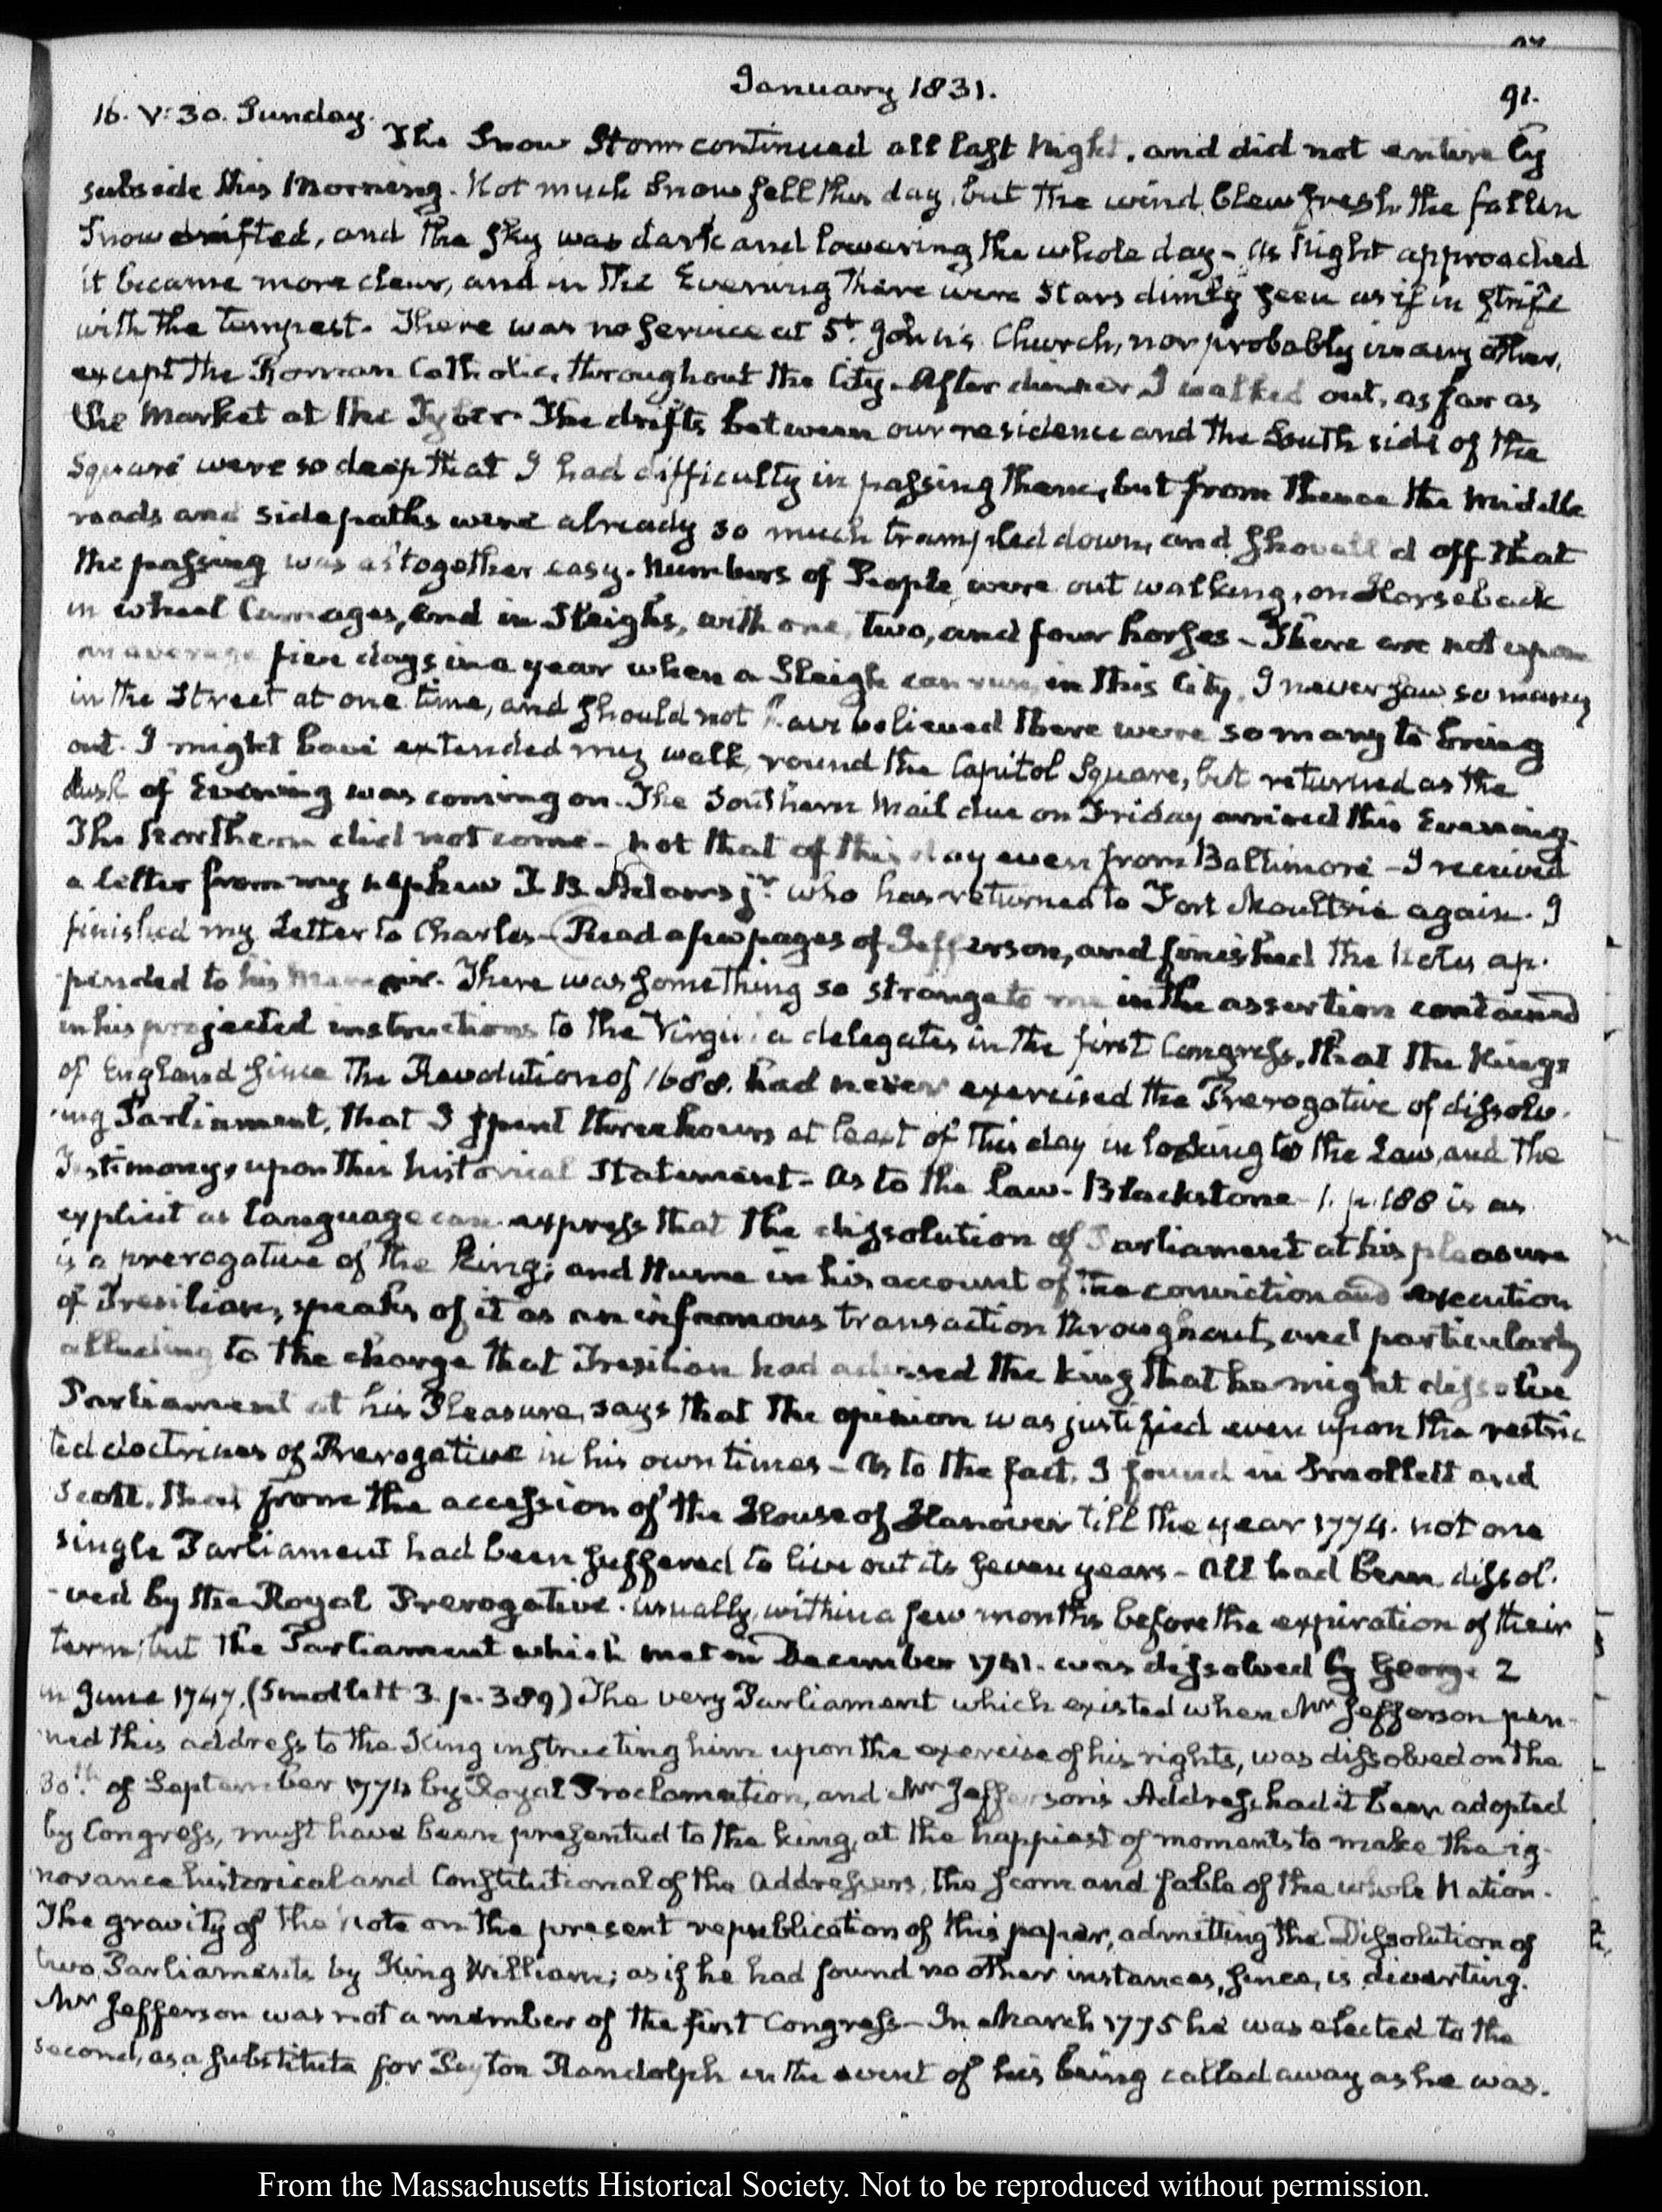 January 1831.
91.
16. V:30. Sunday.
The Snow Storm continued all last Night, and did not entirely
subside this Morning. Not much Snow fell this day, but the wind blew fresh, the fallen
Snow drifted, and the sky was dark and lowering the whole day - As Night approached
it became more clear, and in the Evening there were Stars dimly seen as if in strife
with the tempest. There was no service at St. John's Church, nor probably in any other,
except the Roman Catholic, throughout the City. After dinner I walked out, as far as
the Market at the Tyber. The drifts between our residence and the South side of the
Square were so deep that I had difficulty in passing them, but from thence the middle
roads and side paths were already so much trampled down, and shovell'd off that
the passing was altogether easy. Numbers of People were out walking, on Horseback
in wheel Carriages, and in Sleighs, with one, two, and four horses - There are not upon
an average five days in a year when a Sleigh can run, in this City. I never saw so many
in the Street at one time, and should not have believed there were so many to bring
out. I might have extended my walk, round the Capitol Square, but returned as the
dusk of Evening was coming on. The Southern Mail due on Friday arrived this Evening.
The Northern did not come - not that of this day even from Baltimore - I received
a letter from my nephew J. B. Adams jr. who has returned to Fort Moultrie again. I
finished my Letter to Charles - Read a few pages of Jefferson, and finished the Notes ap-
pended to his Memoir. There was something so strange to me in the assertion contained
in his projected instructions to the Virginia delegates in the first Congress, that the Kings
of England since the Revolution of 1688. had never exercised the Prerogative of dissolv-
ing Parliament, that I spent three hours at least of this day in looking to the Law, and the
Testimony, upon this historical Statement - As to the law - Blackstone 1. p. 188 is as
explicit as language can express that the dissolution of Parliament at his pleasure
is a prerogative of the King; and Hume in his account of the conviction and execution
of Tresilian, speaks of it as an infamous transaction throughout, and particularly
alluding to the charge that Tresilian had advised the king that he might dissolve
Parliament at his Pleasure, says that the opinion was justified even upon the restric
ted doctrines of Prerogative in his own times - As to the fact, I found in Smollett and
Scott, that from the accession of the House of Hanover till the year 1774. not one
single Parliament had been suffered to live out its seven years - All had been dissol-
-ved by the Royal Prerogative. usually, within a few months before the expiration of their
term; but the Parliament which met in December 1741. was dissolved by George 2
in June 1747. (Smollett 3. p. 389) The very Parliament which existed when Mr Jefferson pen-
ned this address to the King instructing him upon the exercise of his rights, was dissolved on the
30th. of September 1774 by Royal Proclamation, and Mr Jefferson's Address, had it been adopted
by Congress, must have been presented to the king, at the happiest of moments to make the ig-
norance historical and Constitutional of the Addressers, the scorn and fable of the whole Nation.
The gravity of the Note on the present republication of this paper, admitting the Dissolution of
two Parliaments by King William; as if he had found no other instances, since, is diverting.
Mr Jefferson was not a member of the first Congress - In March 1775 he was elected to the
second, as a substitute for Peyton Randolph in the event of his being called away as he was.
From the Massachusetts Historical Society. Not to be reproduced without permission.